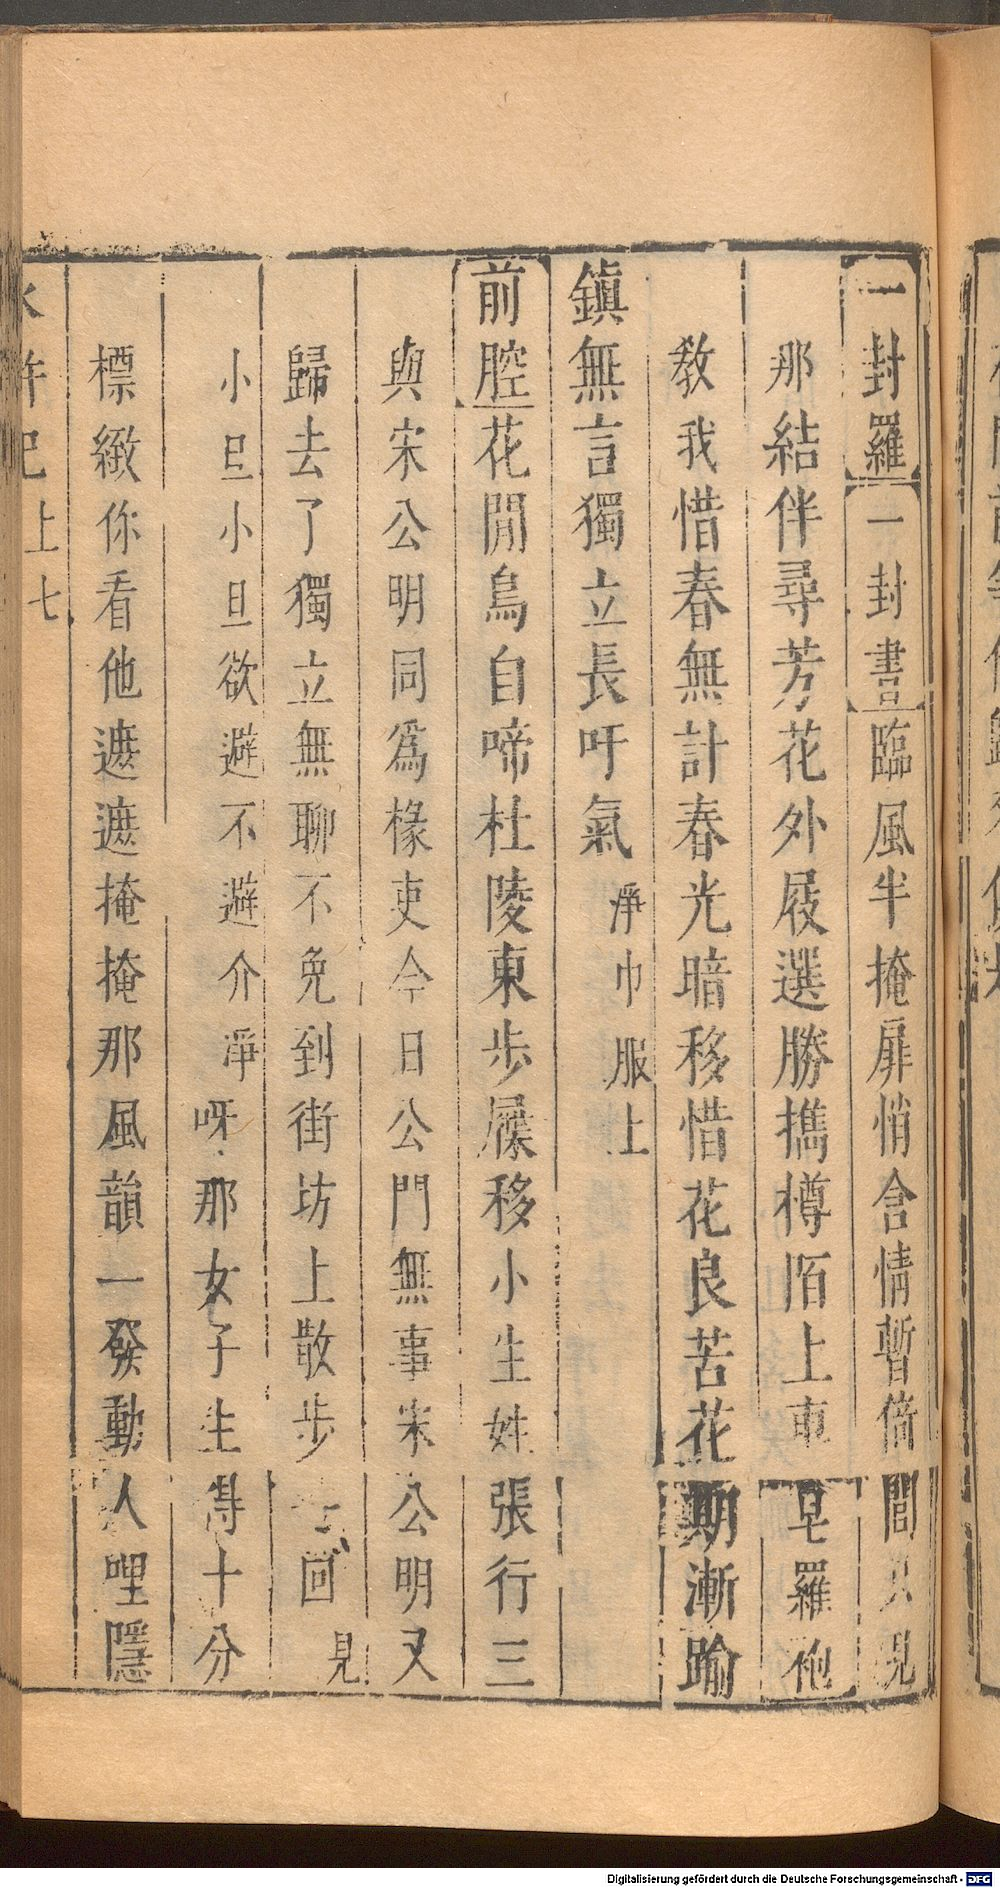 一封羅一封書臨風半掩扉悄含情暫倚閭只見
那結伴尋芳花外屐選勝攜樽陌上車皂羅袍
教我惜春無計春光暗移惜花良苦花期漸踰
鎮無言獨立長吁氣淨巾服上
前腔花開鳥自啼杜陵東步屧移小生姓張行三
與宋公明同爲椽吏今日公門無事宋公明又
歸去了獨立無聊不免到街坊上散步一回見
小旦小旦欲避不避介淨呀那女子生得十分
標緻你看他遮遮掩掩那風韻一發動人哩隱
水滸記上七
Digitalisierung gefördert durch die Deutsche Forschungsgemeinschaft - DFG